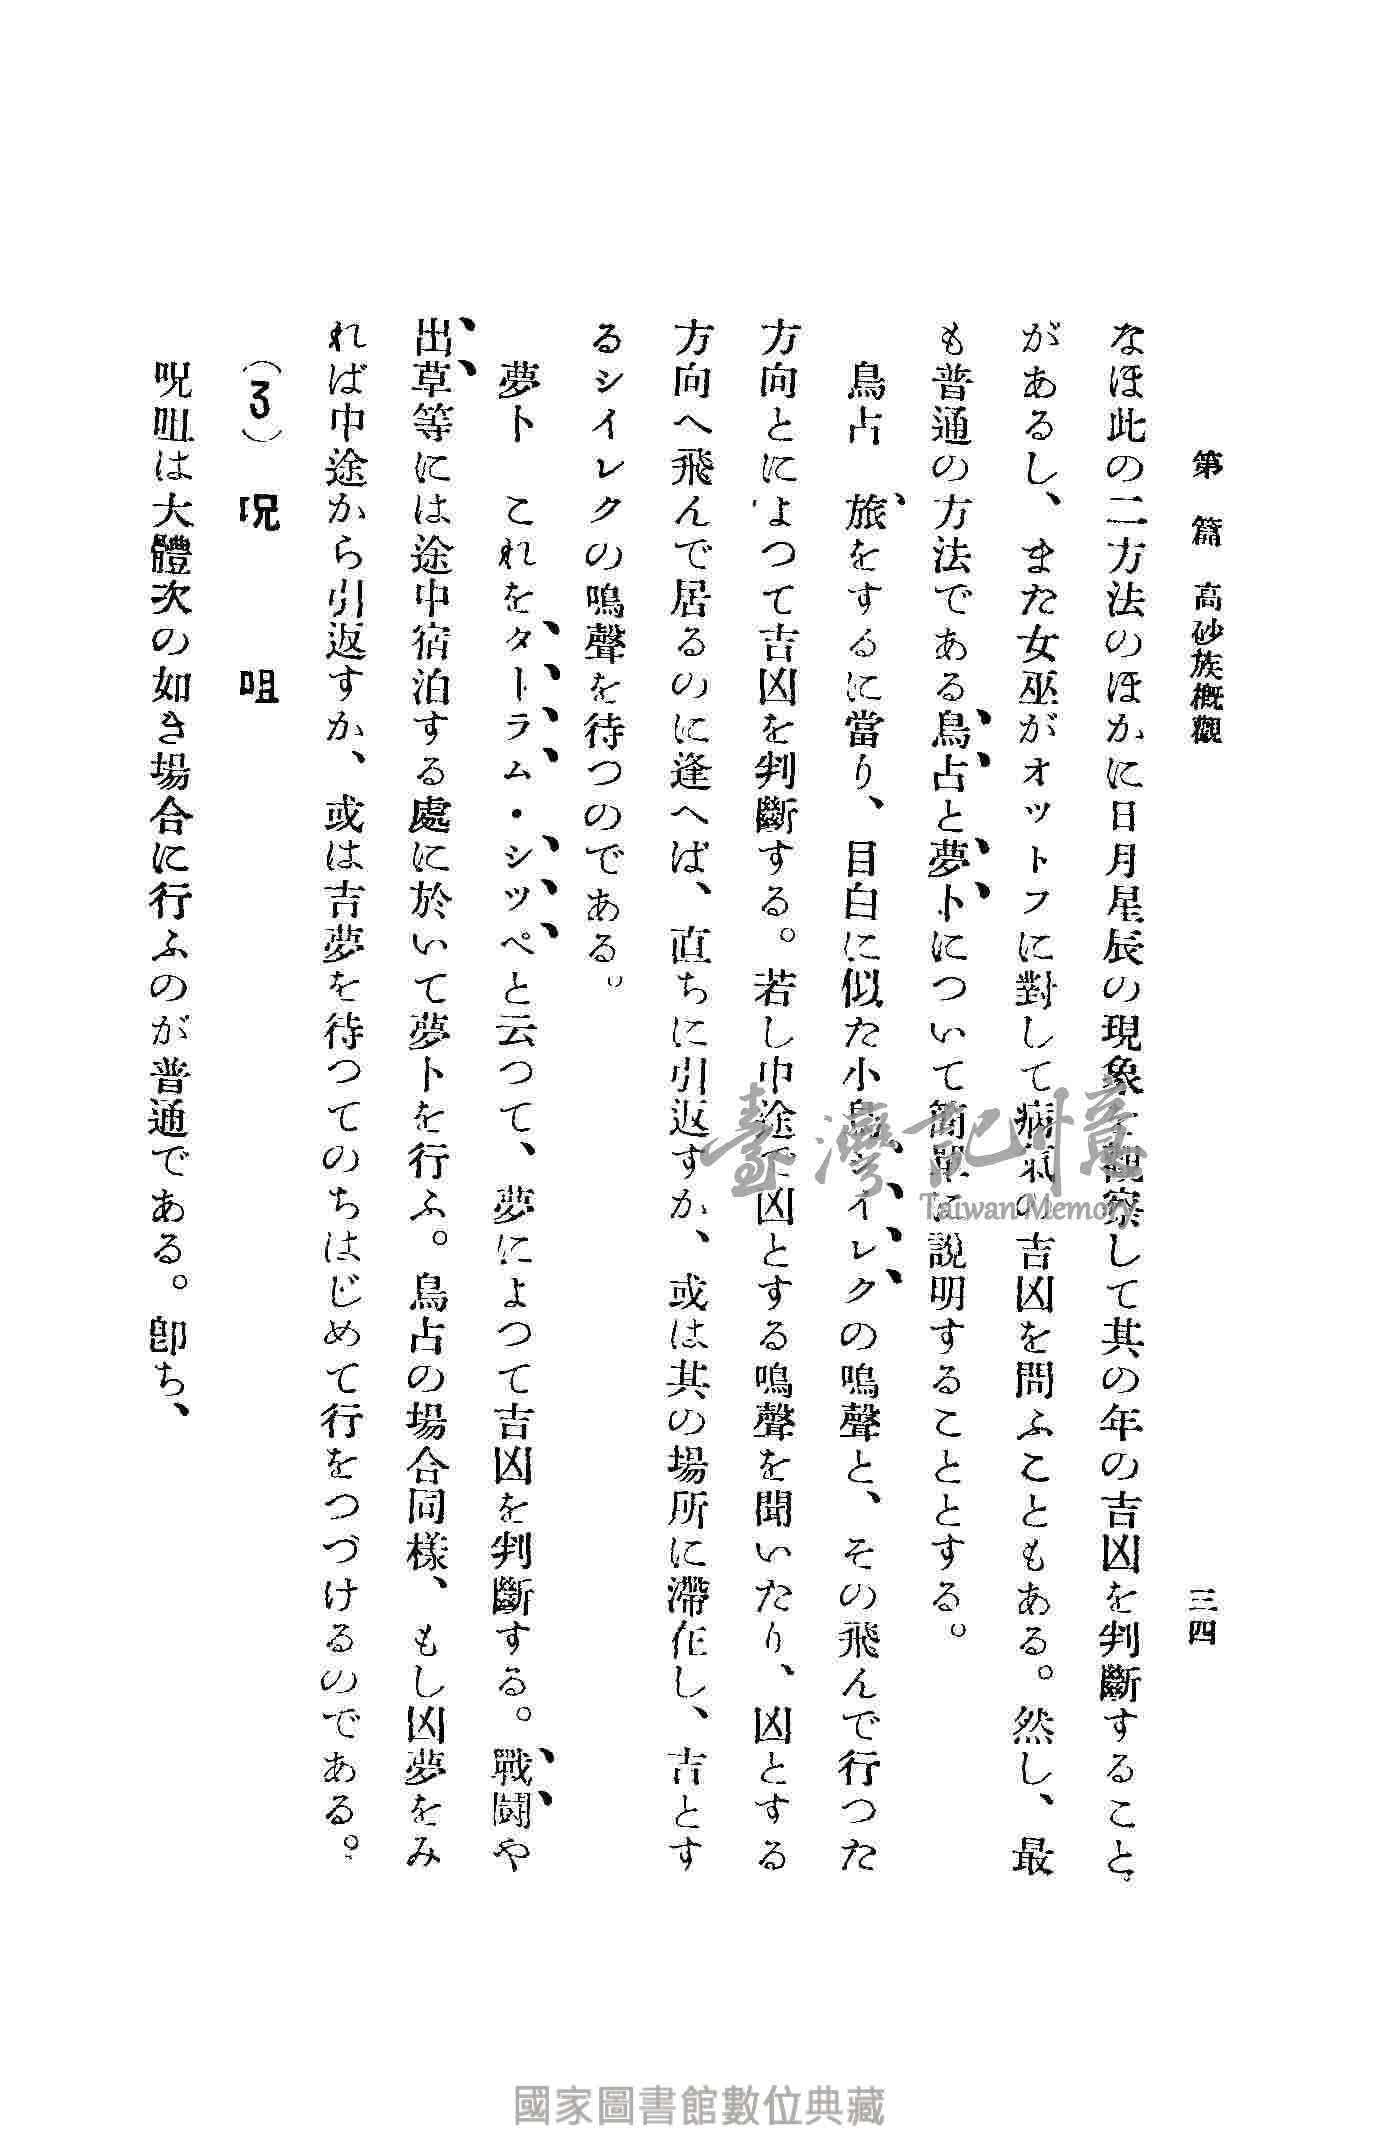 第　篇　高砂族概觀
三四
なほ此の二方法のほかに日月星辰の現象を觀察して其の年の吉凶を判斷すること
があるし、また女巫がオットフに對して病氣の吉凶を問ふこともある。然し、最
も普通の方法である鳥占と夢卜について簡單に說明することとする。
鳥占　旅をするに當り、目白に似た小鳥シイレクの鳴聲と、その飛んで行つた
方向とによつて吉凶を判斷する。若し中途で凶とする鳴聲を聞いたり、凶とする
方向へ飛んで居るのに逢へば、直ちに引返すか、或は其の場所に滯在し、吉とす
るシイレクの鳴聲を待つのである。
夢卜　これをタートラム・シッペと云つて、夢によつて吉凶を判斷する。戰鬪や
出草等には途中宿泊する處に於いて夢卜を行ふ。鳥占の場合同樣、もし凶夢をみ
れば中途から引返すか、或は吉夢を待つてのちはじめて行をつづけるのである。
（３）　呪　咀
呪咀は大體次の如き場合に行ふのが普通である。卽ち、
臺灣記憶
Taiwan Memory
國家圖書館數位典藏